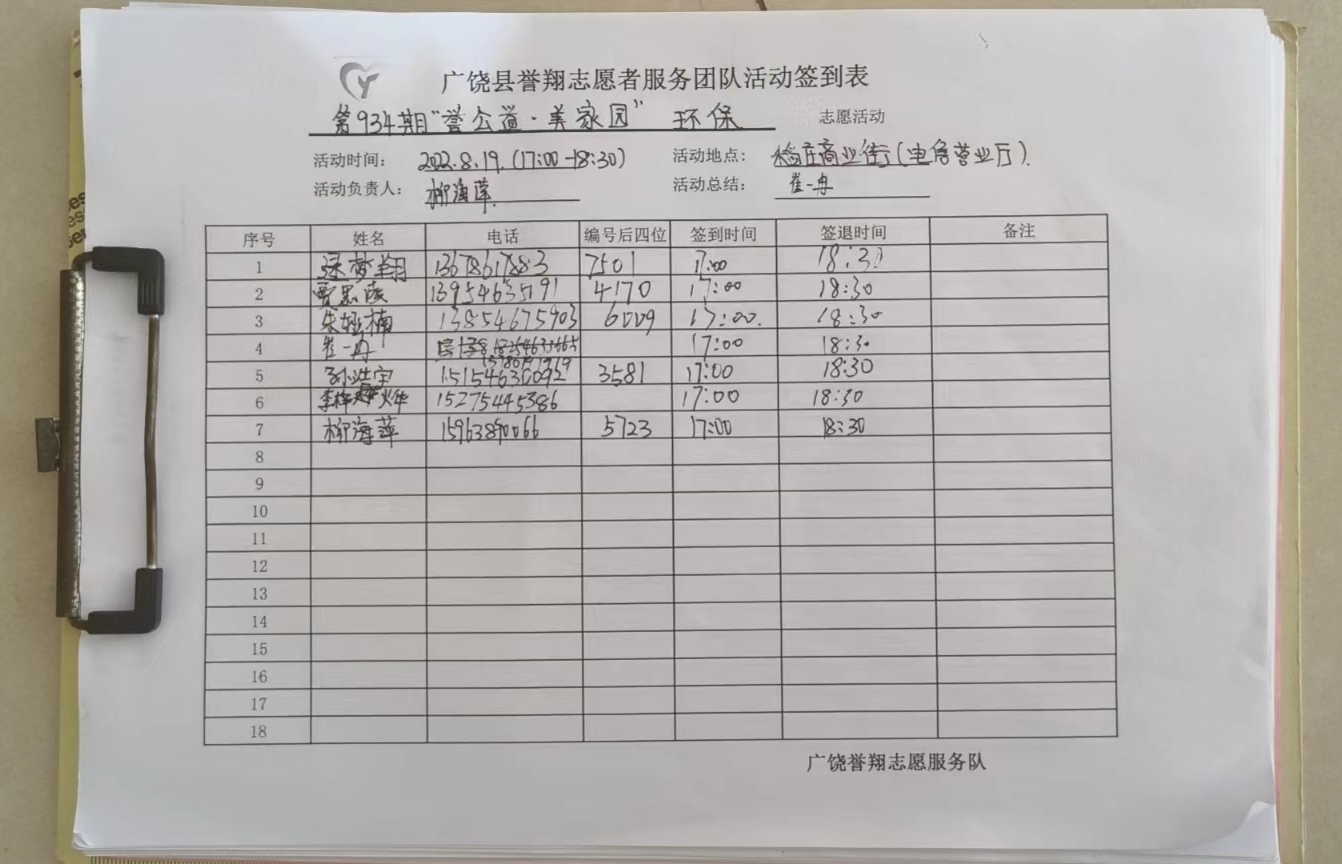 广饶县誉翔志愿者服务团队活动签到表
第934期"誉公道·美家园" 环保 志愿活动
活动时间： 2022.8.19.(17:00-18:30) 活动地点： 稻庄商业街(电信营业厅).
活动负责人： 柳海萍 活动总结： 崔一丹
序号 姓名 电话 编号后四位 签到时间 签退时间 备注
1 梦翔 13678617883 7501 17:00 18:30
2 13954635191 4170 17:00 18:30
3 朱楠 13854675903 6009 17:00. 18:30
4 崔一丹 17:00 18:30
5 孙浩宇 15154630092 3581 17:00 18:30
6 李梓 15275445386 17:00 18:30
7 柳海萍 15963890066 5723 17:00 18:30
8
9
10
11
12
13
14
15
16
17
18
广饶誉翔志愿服务队